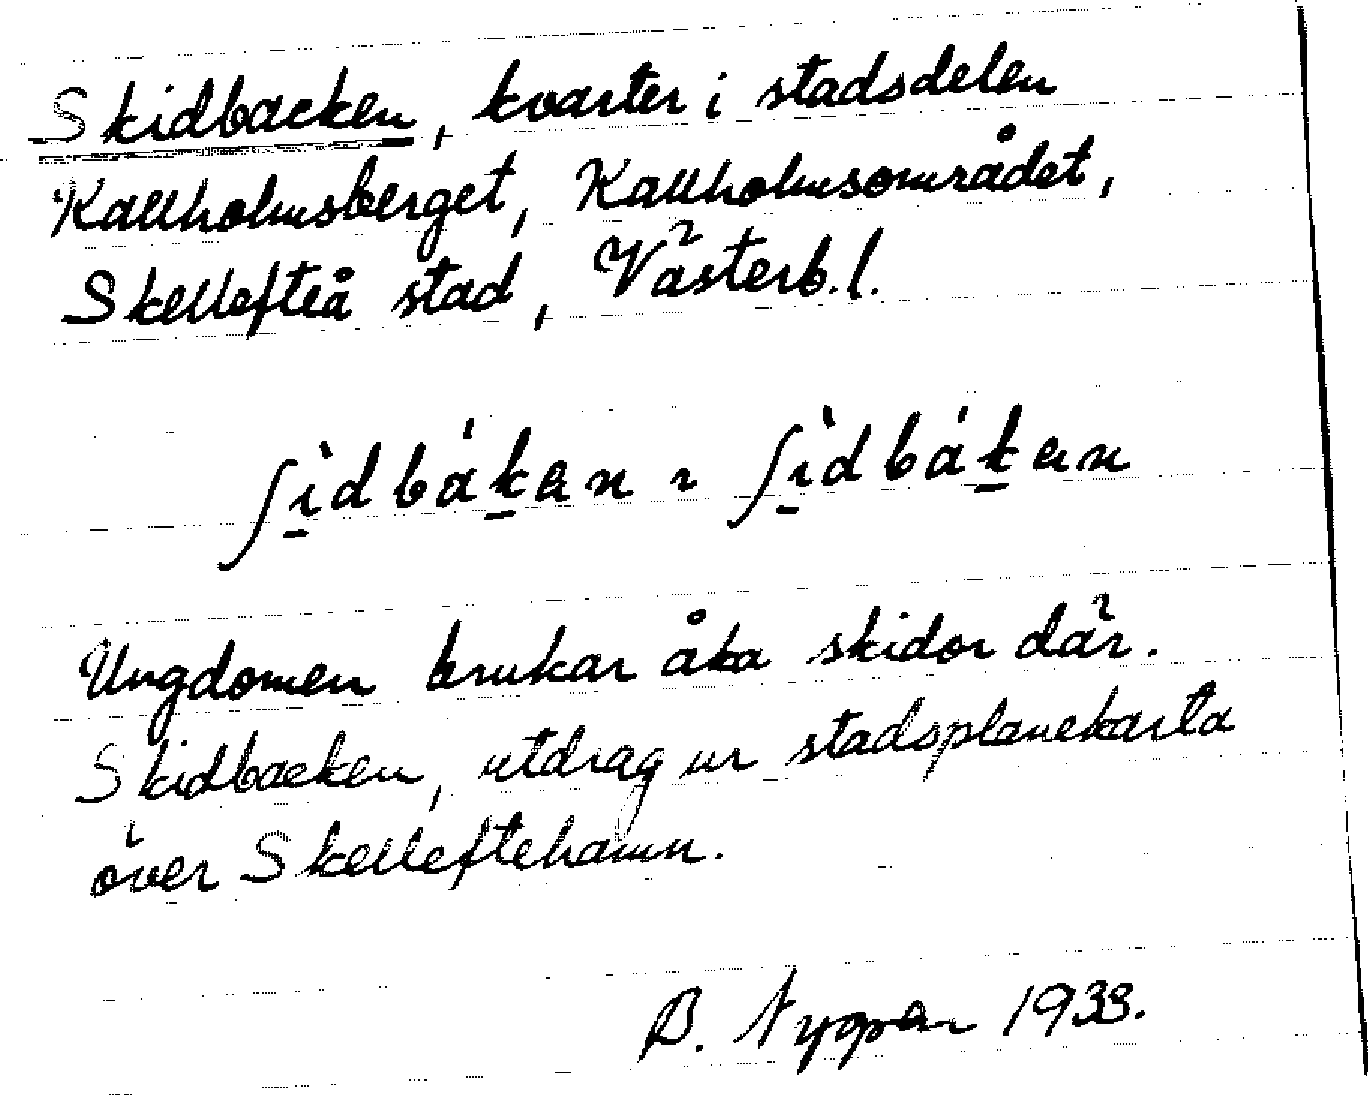 Skidbacken, kvarter i stadsdelen
Kallholmsberget, Kallholmsområdet,
Skellefteå stad, Västerb. l.
ʃi̱dbák̠en ~ ʃi̱dbák̠en
Ungdomen brukar åka skidor där.
Skidbacken, utdrag ur stadsplanekarta
över Skelleftehamn.
B. Nygren 1933.